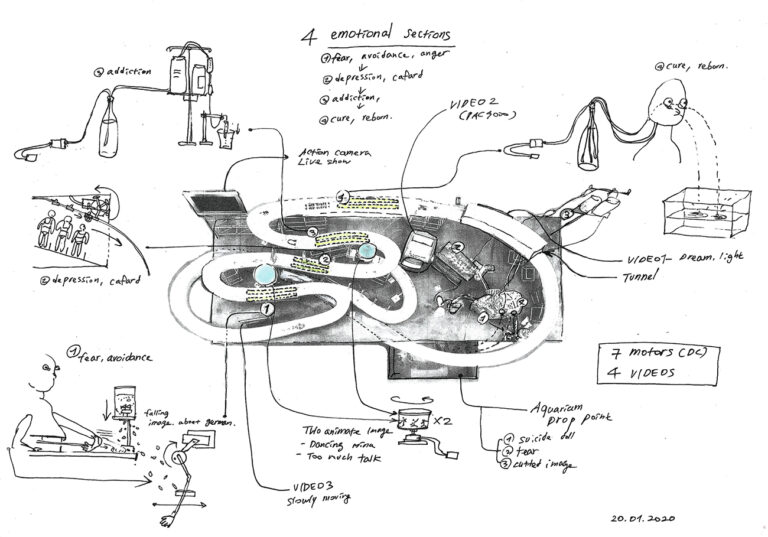 4 emotional sections
① fear, avoidance, anger
↓
② depression, cafard
↓
③ addiction,
↓
④ cure, reborn.
③ addiction
④ cure, reborn.
VIDEO 2
Action camera
Live show
② depression, cafard
VIDEO 1 - Dream, light
Tunnel
7 motors (DC)
4 VIDEOS
① fear, avoidance
falling
image about german.
Two animate image
- Dancing nina
- Too much talk
X2
VIDEO 3
slowly moving
Aquarium
Drop point
① suicide doll
② tear
③ cutted image
20.01.2020